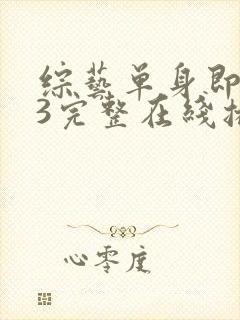 綜藝单身即
3完整在綫
心零度